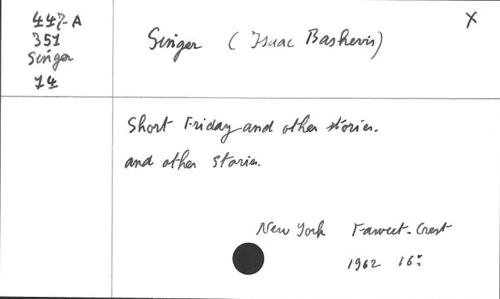 447-A
351
Singer
14
Singer (Isaac Bashevis)
X
Short Friday and other stories.
and other stories.
New York Fawcet-Crest
1962 16º